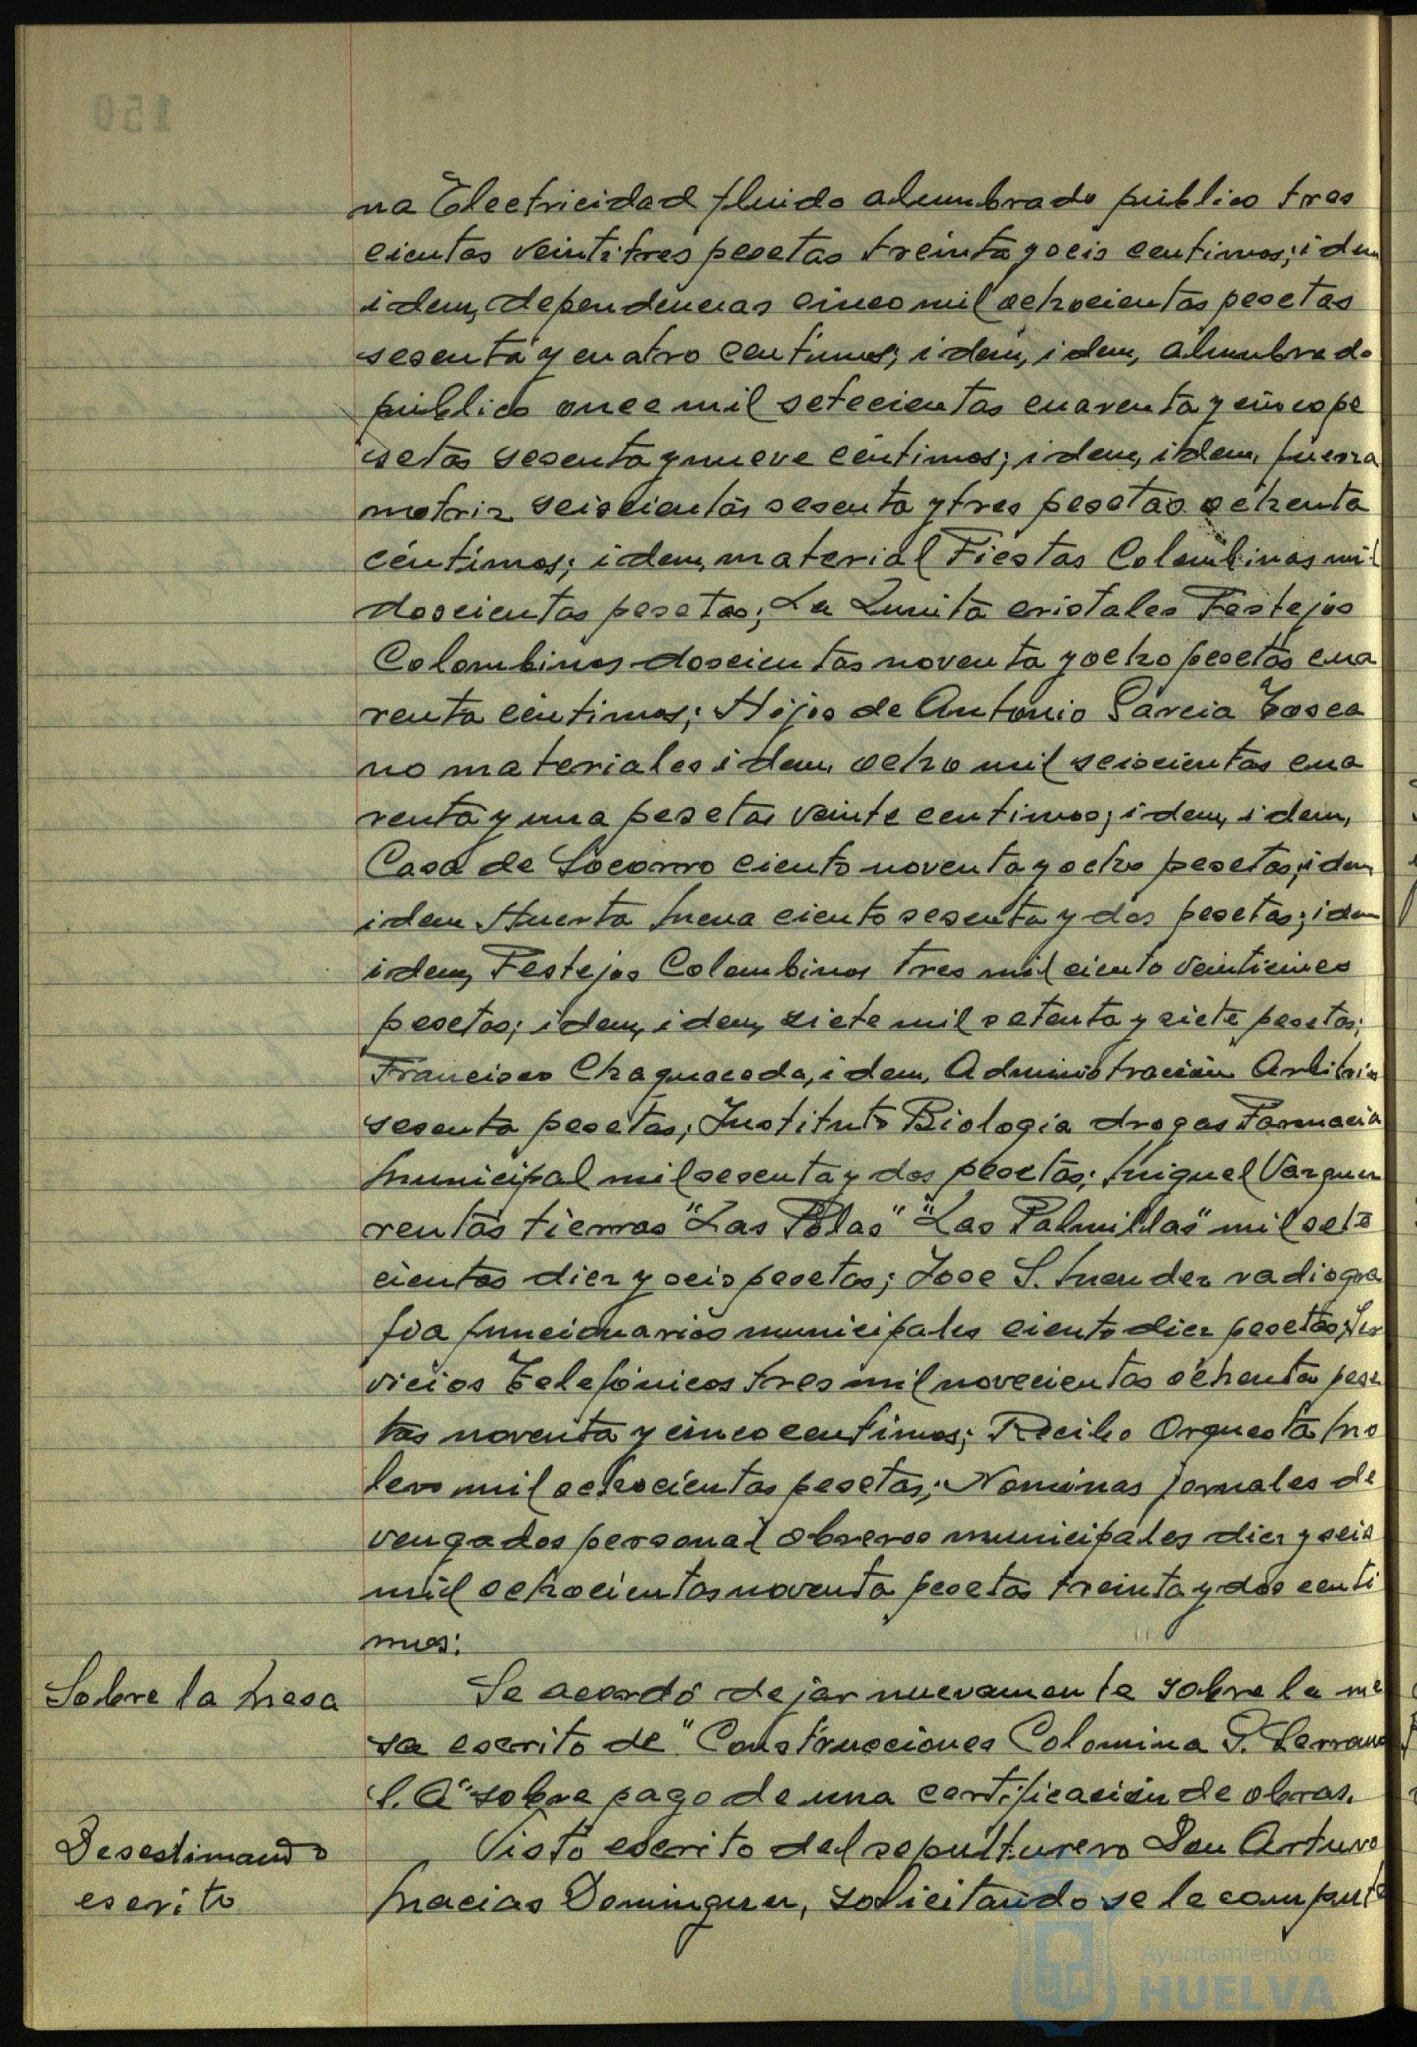 na Electricidad fluido alumbrado publico tres
cientas veintitres pesetas treinta y seis centimos; idem
idem, dependencias cinco mil ochocientas pesetas
sesenta y cuatro centimos; idem, idem, alumbrado
publico once mil setecientas cuarenta y cinco pe
setas sesenta y nueve céntimos; idem, idem, fuerza
motriz seiscientas sesenta y tres pesetas ochenta
céntimos; idem, material Fiestas Colombinas mil
doscientas pesetas; La Lunita cristales Festejos
Colombinos doscientas noventa y ocho pesetas cua
renta céntimos; Hijos de Antonio Garcia Tosca
no materiales idem, ocho mil seiscientas cua
renta y una pesetas veinte centimos; idem, idem,
Casa de Socorro ciento noventa y ocho pesetas; idem
idem Huerta Mena ciento sesenta y dos pesetas; idem
idem, Festejos Colombinos tres mil ciento veinticinco
pesetas; idem, idem, siete mil setenta y siete pesetas;
Francisco Chaguaceda, idem, Administración Arbitrios
sesenta pesetas; Instituto Biologia drogas Farmacia
Municipal mil sesenta y dos pesetas; Miguel Vazquez
rentas tierras "Las Polas" "Las Palmillas" mil sete
cientas diez y seis pesetas; Jose S. Mendez radiogra
fia funcionarios municipales ciento diez pesetas; Ser
vicios Telefónicos tres mil novecientas ochenta pese
tas noventa y cinco centimos; Recibo Orquesta Mo
lero mil ochocientas pesetas; Nominas jornales de
vengados personal obreros municipales diez y seis
mil ochocientas noventa pesetas treinta y dos centi
mos:
Sobre la Mesa
Se acordó dejar nuevamente sobre la me
sa escrito de "Construcciones Colomina G. Serrano
S.A" sobre pago de una certificación de obras.
Desestimando
escrito
Visto escrito del sepulturero Don Arturo
Macias Dominguez, solicitando se le compute
Ayuntamiento de
HUELVA